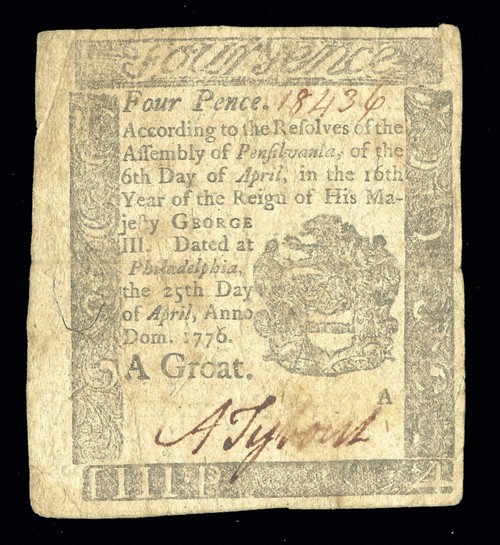 Four Pence
Four Pence. 18436
According to the Reſolves of the
Aſſembly of Penſilvania, of the
6th Day of April, in the 16th
Year of the Reign of His Ma-
jeſty GEORGE
III. Dated at
Philadelphia,
the 25th Day
of April, Anno
Dom. 1776.
A Groat.
A
A Tybout
IIII P 4